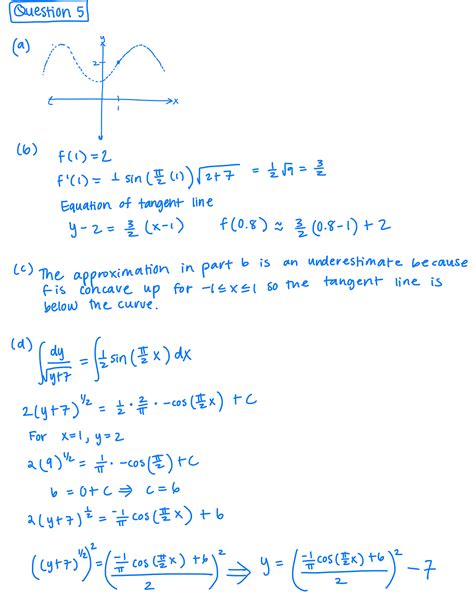 Question 5
(a)
y
2
x
1
(b) f(1) = 2
f'(1) = 1/2 sin(π/2 (1)) √2+7 = 1/2 √9 = 3/2
Equation of tangent line
y-2 = 3/2 (x-1) f(0.8) ≈ 3/2 (0.8-1) + 2
(c) The approximation in part b is an underestimate because
f is concave up for -1≤x≤1 so the tangent line is
below the curve.
(d) ∫ dy/√y+7 = ∫ 1/2 sin(π/2 x) dx
2(y+7)^1/2 = 1/2 · 2/π · -cos(π/2 x) + C
For x=1, y=2
2(9)^1/2 = 1/π · -cos(π/2) + C
6 = 0+C ⇒ C=6
2(y+7)^1/2 = -1/π cos(π/2 x) + 6
((y+7)^1/2)^2 = ((-1/π cos(π/2 x) + 6)/2)^2 ⇒ y = ((-1/π cos(π/2 x) + 6)/2)^2 - 7